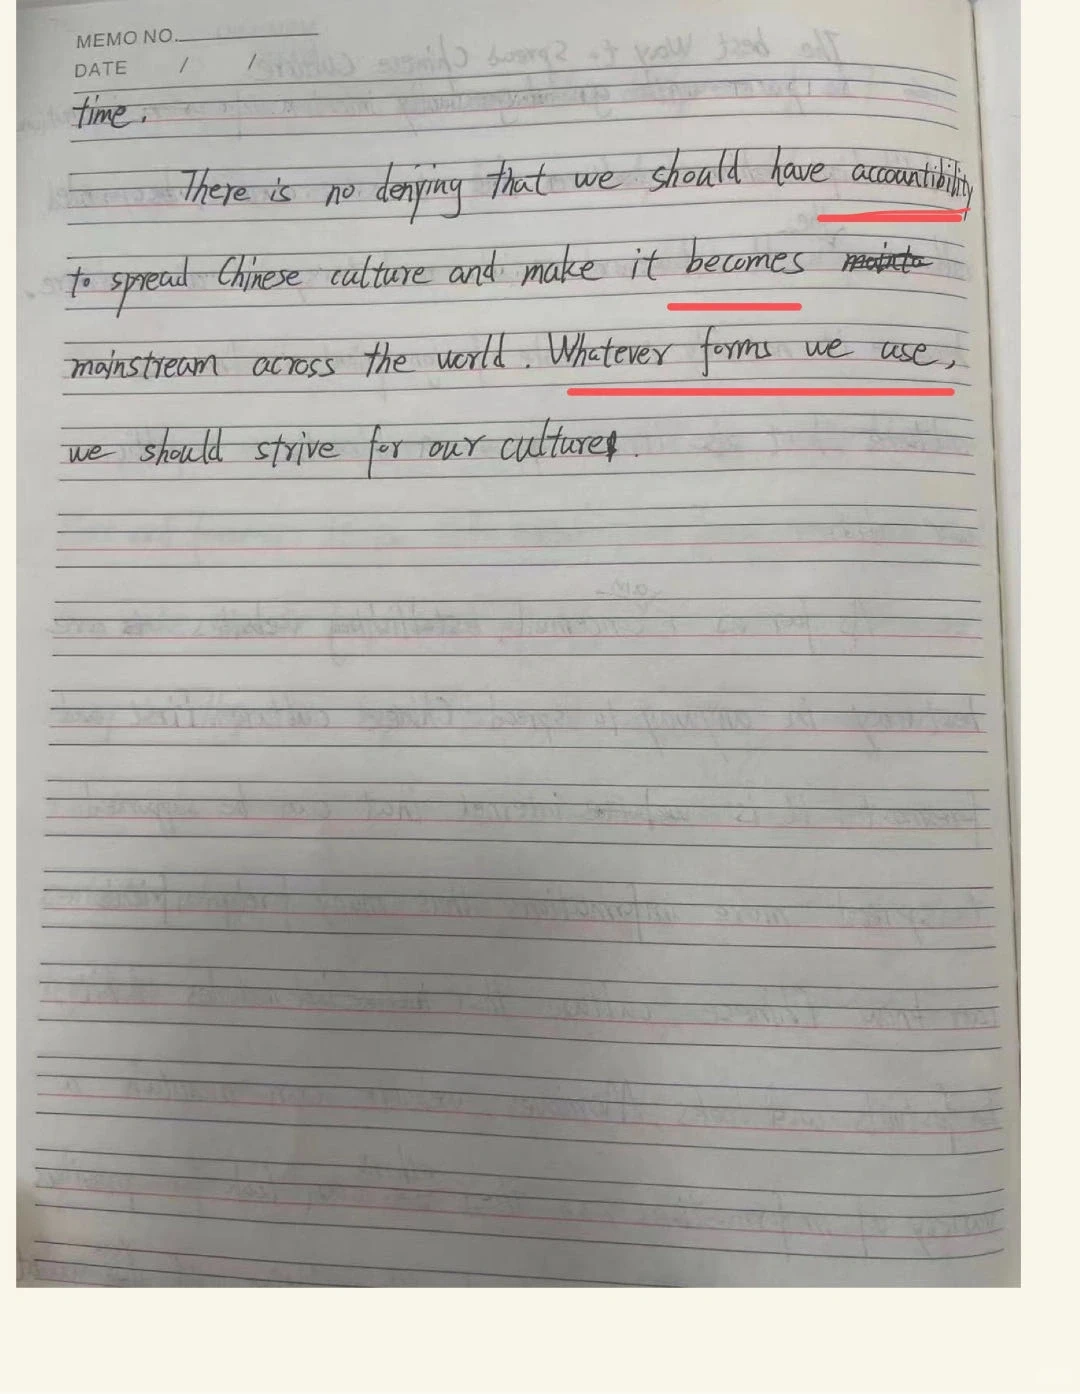 MEMO NO.
DATE / /
time.
There is no denying that we should have accountibility
to spread Chinese culture and make it becomes
mainstream across the world. Whatever forms we use,
we should strive for our culture.